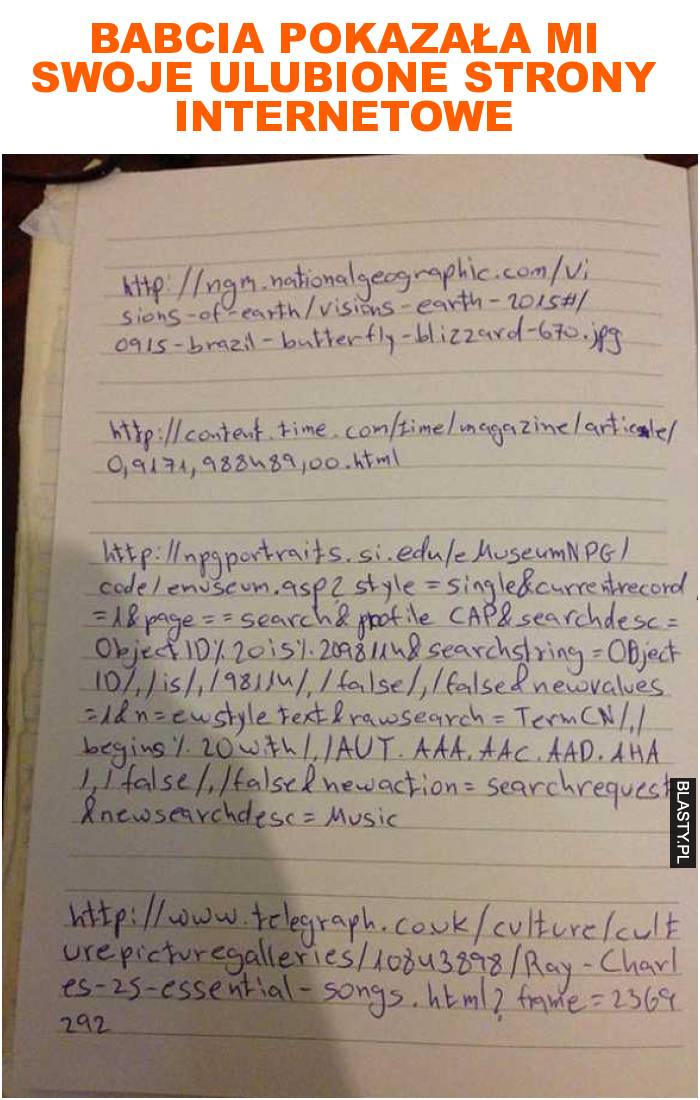 BABCIA POKAZAŁA MI
SWOJE ULUBIONE STRONY
INTERNETOWE
http://ngm.nationalgeographic.com/vi
sions-of-earth/visions-earth-2015#/
0915-brazil-butterfly-blizzard-670.jpg
http://content.time.com/time/magazine/article/
0,9171,988489,00.html
http://npgportraits.si.edu/eMuseumNPG/
code/emuseum.asp?style=single&currentrecord
=1&page==search&profile CAP&searchdesc=
Object ID%20is%209811U&searchstring=OBject
ID/,/is/,/9811U/,/false/,/false&newvalues
=1&n=ewstyletext&rawsearch=TermCN/,/
begins%20with/,/AUT.AAA.AAC.AAD.AHA
/,/false/,/false&newaction=searchrequest
&newsearchdesc=Music
http://www.telegraph.co.uk/culture/cult
urepicturegalleries/10843898/Ray-Charl
es-25-essential-songs.html?frame=2369
292
BLASTY.PL